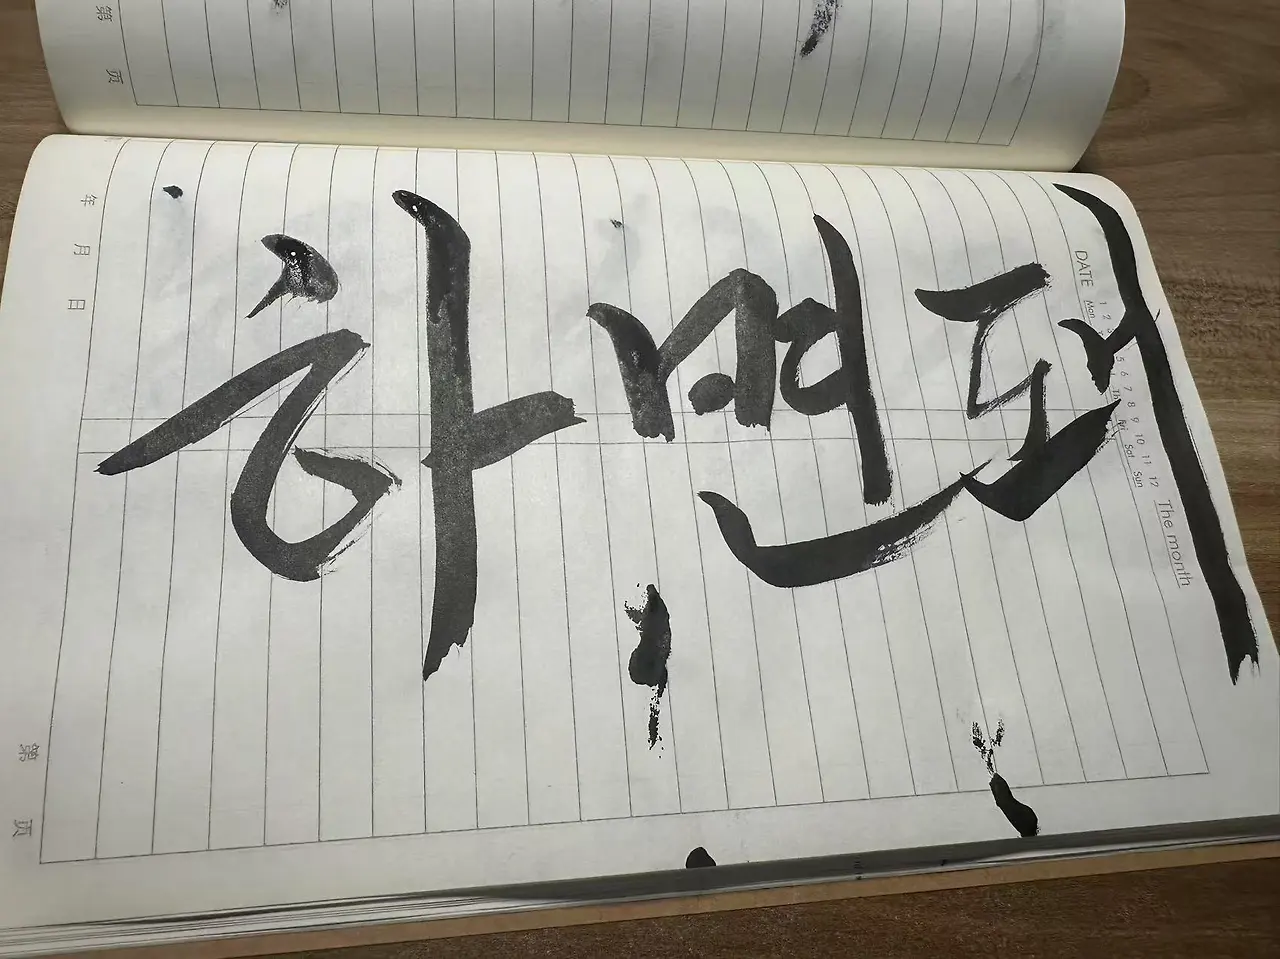 第 页
年 月 日
하면돼
DATE
1 2 3 5 6 7 8 9 10 11 12
Mon Fri Sat Sun
The month
第 页